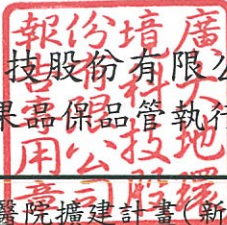 技股份有限公
果品保品管執行
醫院擴建計畫(新
廣大地環
境科技股
份有限公司
報告專用章